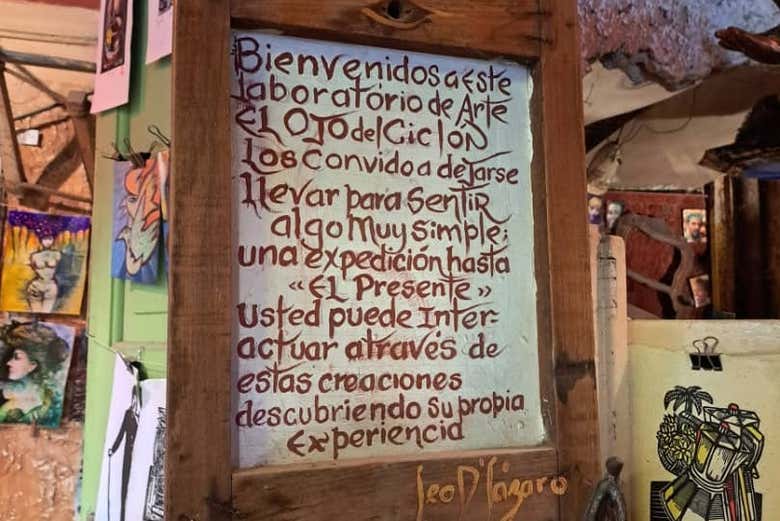 Bienvenidos a este
laboratorio de Arte
EL OJO del Ciclón
Los convido a dejarse
llevar para sentir
algo muy simple:
una expedición hasta
«EL Presente»
usted puede Inter-
actuar através de
estas creaciones
descubriendo su propia
experiencia
Leo D'Lázaro